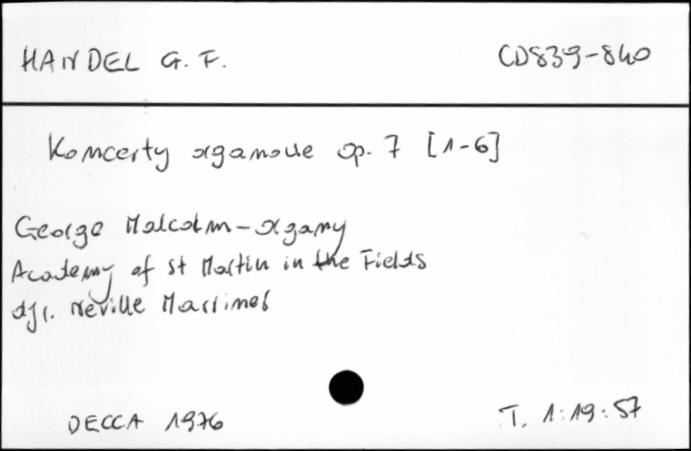 HANDEL G. F. CD839-840
Koncerty organowe op. 7 [1-6]
George Malcolm - organy
Academy of St Martin in the Fields
dyr. Neville Marriner
DECCA 1976 T. 1:19:57